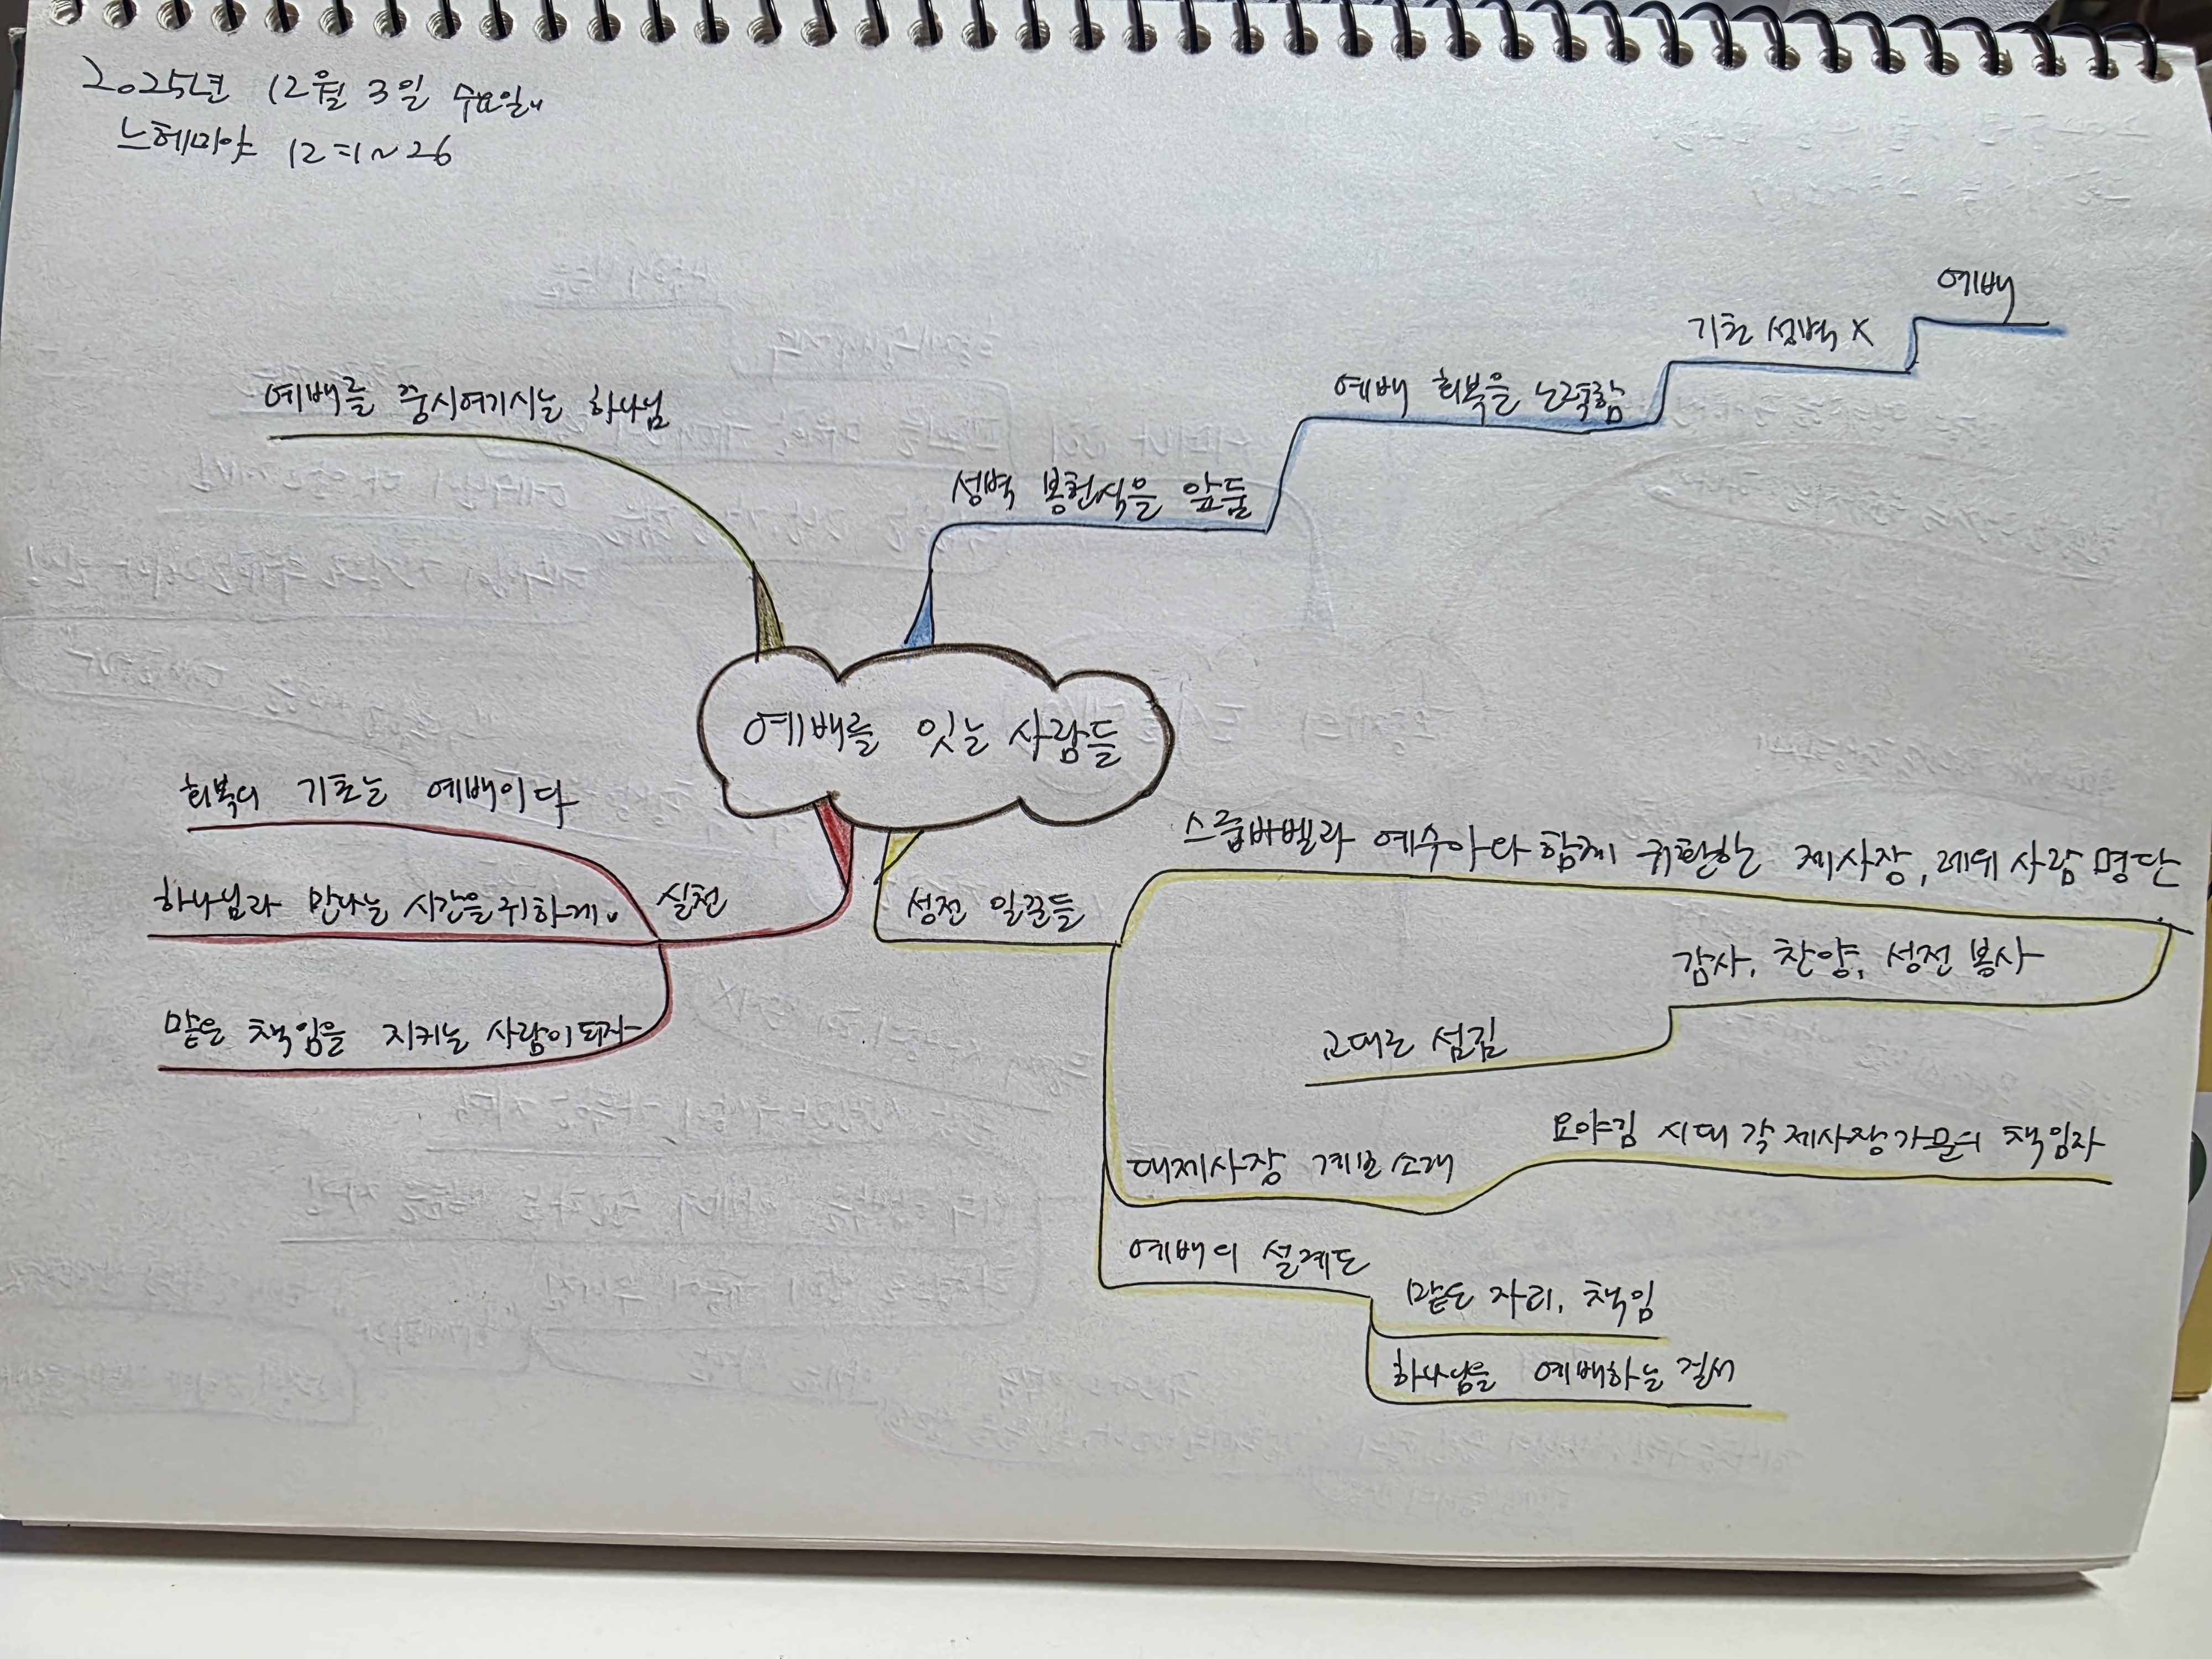 2025년 12월 3일 수요일
느헤미야 12:1~26
예배
기초 성벽 X
예배 회복을 노력함
성벽 봉헌식을 앞둠
예배를 중시여기시는 하나님
예배를 잇는 사람들
회복의 기초는 예배이다
하나님과 만나는 시간을 귀하게
실천
맡은 책임을 지키는 사람이 되자
성전 일꾼들
스룹바벨과 예수아와 함께 귀환한 제사장, 레위 사람 명단
감사, 찬양, 성전 봉사
교대로 섬김
대제사장 계보 소개
요야김 시대 각 제사장 가문의 책임자
예배의 설계도
맡은 자리, 책임
하나님을 예배하는 질서